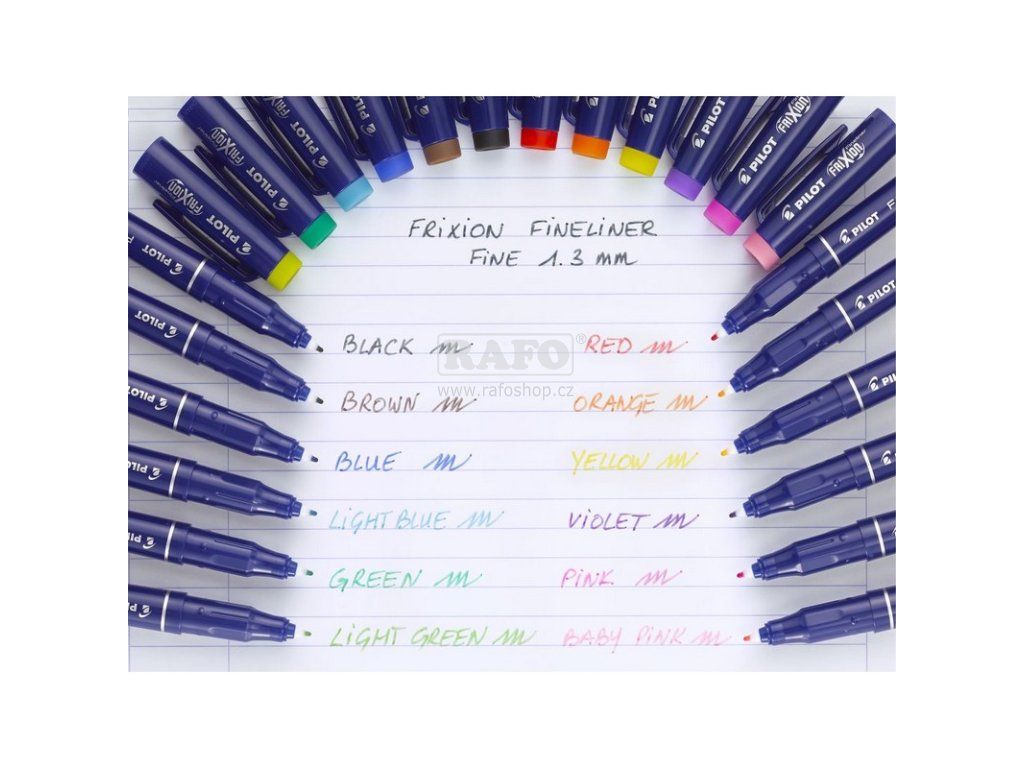 PILOT FRIXION
PILOT FRIXION
PILOT
PILOT
PILOT FRIXION
PILOT FRIXION
FRIXION FINELINER
FINE 1.3 mm
BLACK
RED
BROWN
ORANGE
BLUE
YELLOW
LIGHT BLUE
VIOLET
GREEN
PINK
LIGHT GREEN
BABY PINK
RAFO®
www.rafoshop.cz
PILOT
PILOT
PILOT
PILOT
PILOT